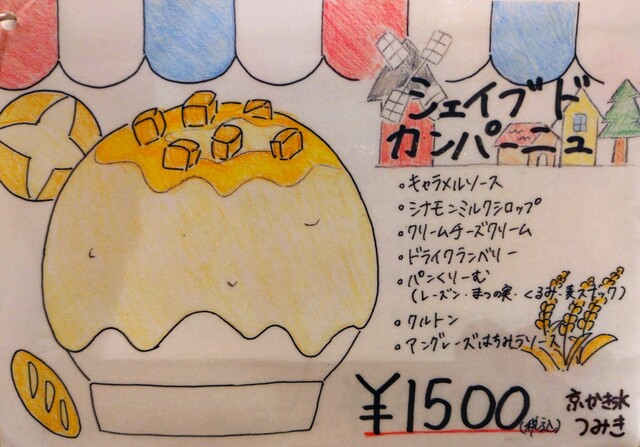 シェイブド
カンパーニュ
。キャラメルソース
。シナモンミルクシロップ
。クリームチーズクリーム
。ドライクランベリー
。パンくりーむ
(レーズン・まつの実・くるみ・麦スティック)
。クルトン
。アングレーズはちみつソース
¥1500(税込)
京かき氷
つみき